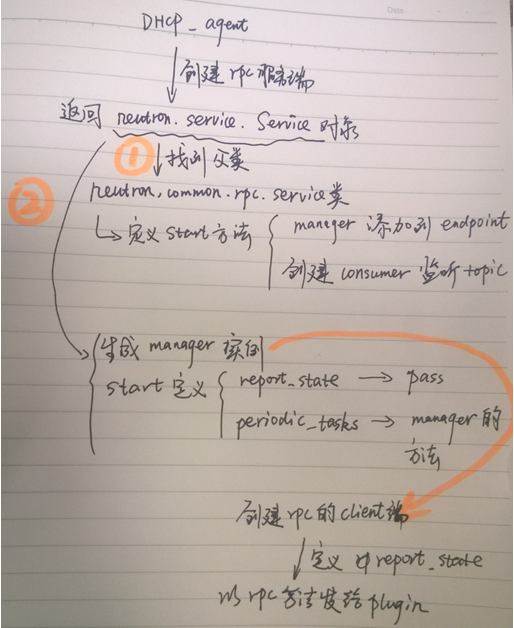 Date.
DHCP_agent
创建rpc服务端
返回 neutron.service.Service 对象
① 找到父类
② neutron.common.rpc.service类
定义start方法 manager 添加到 endpoint
创建consumer 监听topic
生成manager 实例
start 定义 report_state → pass
periodic_tasks → manager的
方法
创建rpc的client端
定义 report_state
以rpc方法发给plugin